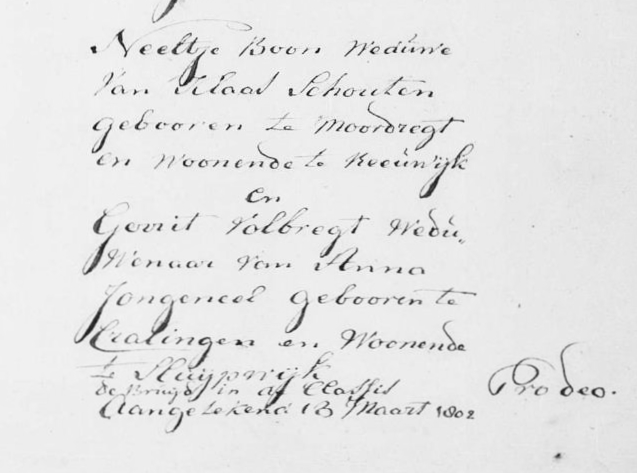 Neeltje Boon Weduwe
Van Klaas Schouten
gebooren te Moordregt
en Woonende te Reeuwijk
en
Gerrit Valbregt Wedu„
Wenaar Van Anna
Jongeneel gebooren te
Cralingen en Woonende
te Sluijpwijk
de Bruijd in de Classis Pro deo.
Aangetekend 13 Maart 1802